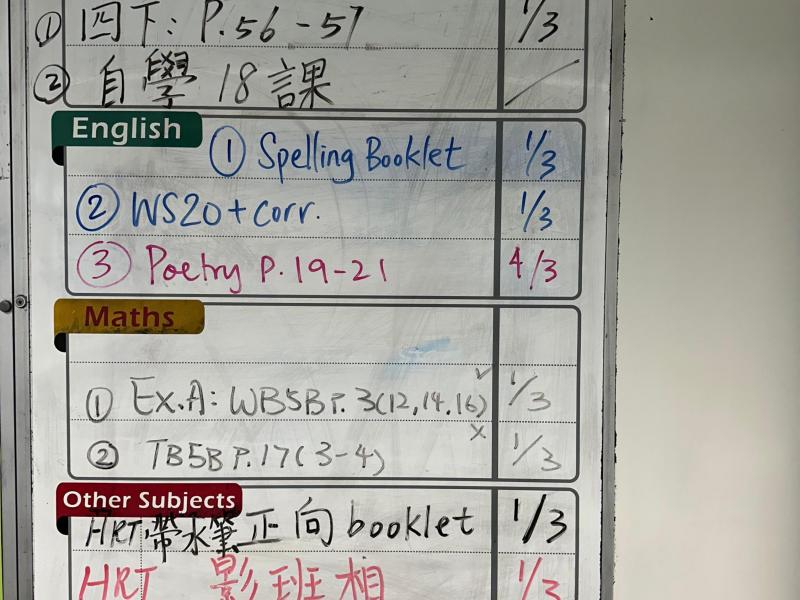 ① 四下: P.56-57 1/3
② 自學 18 課
English
① Spelling Booklet 1/3
② WS20 + corr. 1/3
③ Poetry P. 19-21 4/3
Maths
① Ex.A: WB5B P. 3(12,14,16) ✓ 1/3
② TB5B P.17(3-4) x 1/3
Other Subjects
HRT, 帶水筆 正向 booklet 1/3
HRT 影班相 1/3